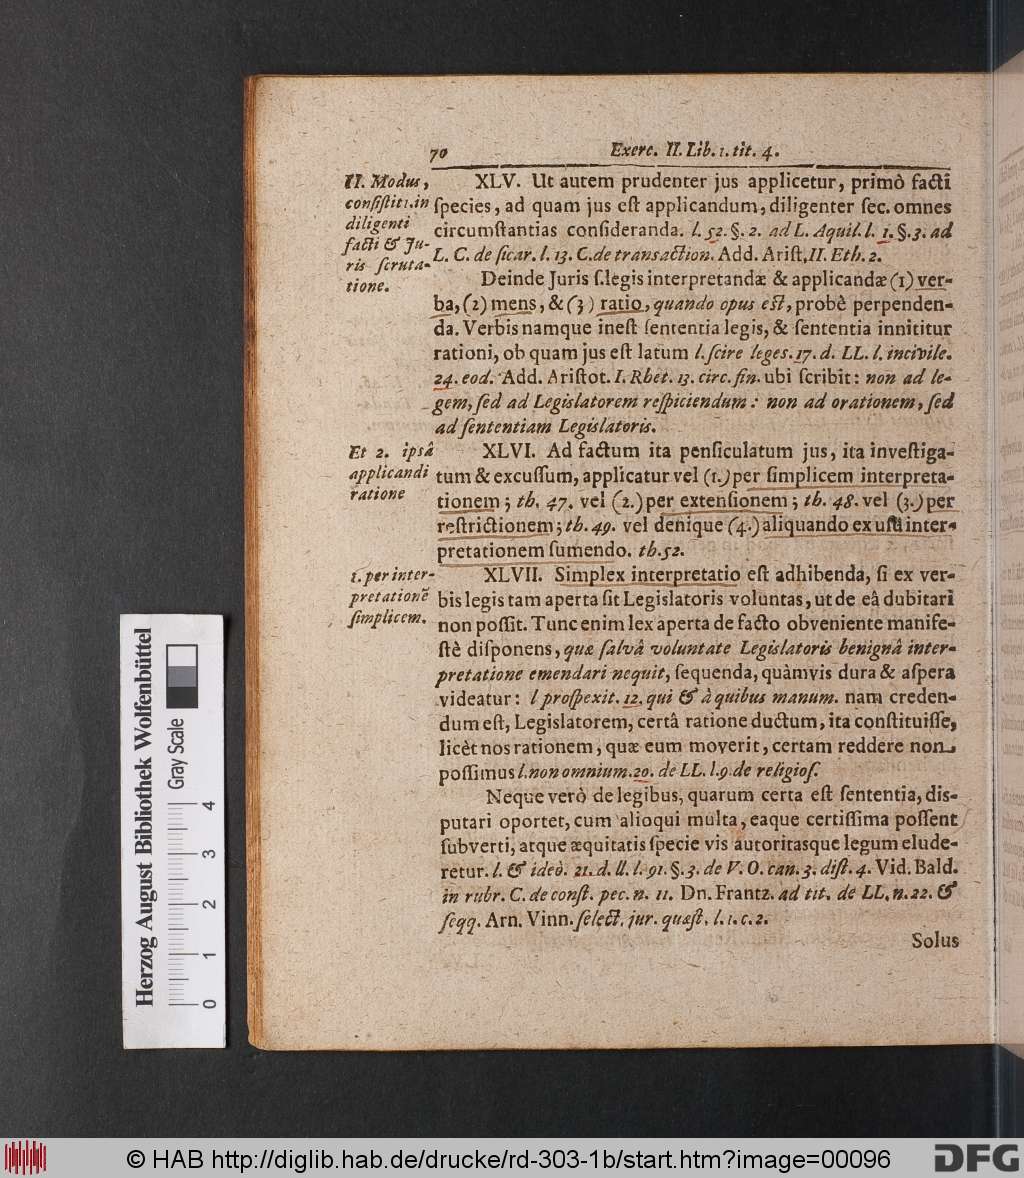 70 Exerc. II. Lib. 1. tit. 4.
II. Modus,
consistit 1. in
diligenti
facti & Ju-
ris scruta-
tione.
XLV. Ut autem prudenter jus applicetur, primò facti
species, ad quam jus est applicandum, diligenter sec. omnes
circumstantias consideranda. l. 52. §. 2. ad L. Aquil. l. 1. §. 3. ad
L. C. de sicar. l. 13. C. de transaction. Add. Arist. II. Eth. 2.
Deinde Juris s. legis interpretandæ & applicandæ (1) ver-
ba, (2) mens, & (3) ratio, quando opus est, probè perpenden-
da. Verbis namque inest sententia legis, & sententia innititur
rationi, ob quam jus est latum l. scire leges. 17. d. LL. l. incivile.
24. eod. Add. Aristot. I. Rhet. 13. circ. fin. ubi scribit: non ad le-
gem, sed ad Legislatorem respiciendum: non ad orationem, sed
ad sententiam Legislatoris.
Et 2. ipsâ
applicandi
ratione
XLVI. Ad factum ita pensiculatum jus, ita investiga-
tum & excussum, applicatur vel (1.) per simplicem interpreta-
tionem; th. 47. vel (2.) per extensionem; th. 48. vel (3.) per
restrictionem; th. 49. vel denique (4.) aliquando ex usu inter-
pretationem sumendo. th. 52.
1. per inter-
pretationẽ
simplicem.
XLVII. Simplex interpretatio est adhibenda, si ex ver-
bis legis tam aperta sit Legislatoris voluntas, ut de eâ dubitari
non possit. Tunc enim lex aperta de facto obveniente manife-
stè disponens, quæ salvâ voluntate Legislatoris benignâ inter-
pretatione emendari nequit, sequenda, quàmvis dura & aspera
videatur: l prospexit. 12. qui & à quibus manum. nam creden-
dum est, Legislatorem, certâ ratione ductum, ita constituisse,
licèt nos rationem, quæ eum moverit, certam reddere non
possimus l. non omnium. 20. de LL. l. 9. de religios.
Neque verò de legibus, quarum certa est sententia, dis-
putari oportet, cum alioqui multa, eaque certissima possent
subverti, atque æquitatis specie vis autoritasque legum elude-
retur. l. & ideò. 21. d. ll. l. 91. §. 3. de V. O. can. 3. dist. 4. Vid. Bald.
in rubr. C. de const. pec. n. 11. Dn. Frantz. ad tit. de LL. n. 22. &
seqq. Arn. Vinn. select. jur. quæst. l. 1. c. 2.
Solus
Herzog August Bibliothek Wolfenbüttel
Gray Scale
0 1 2 3 4
© HAB http://diglib.hab.de/drucke/rd-303-1b/start.htm?image=00096
DFG